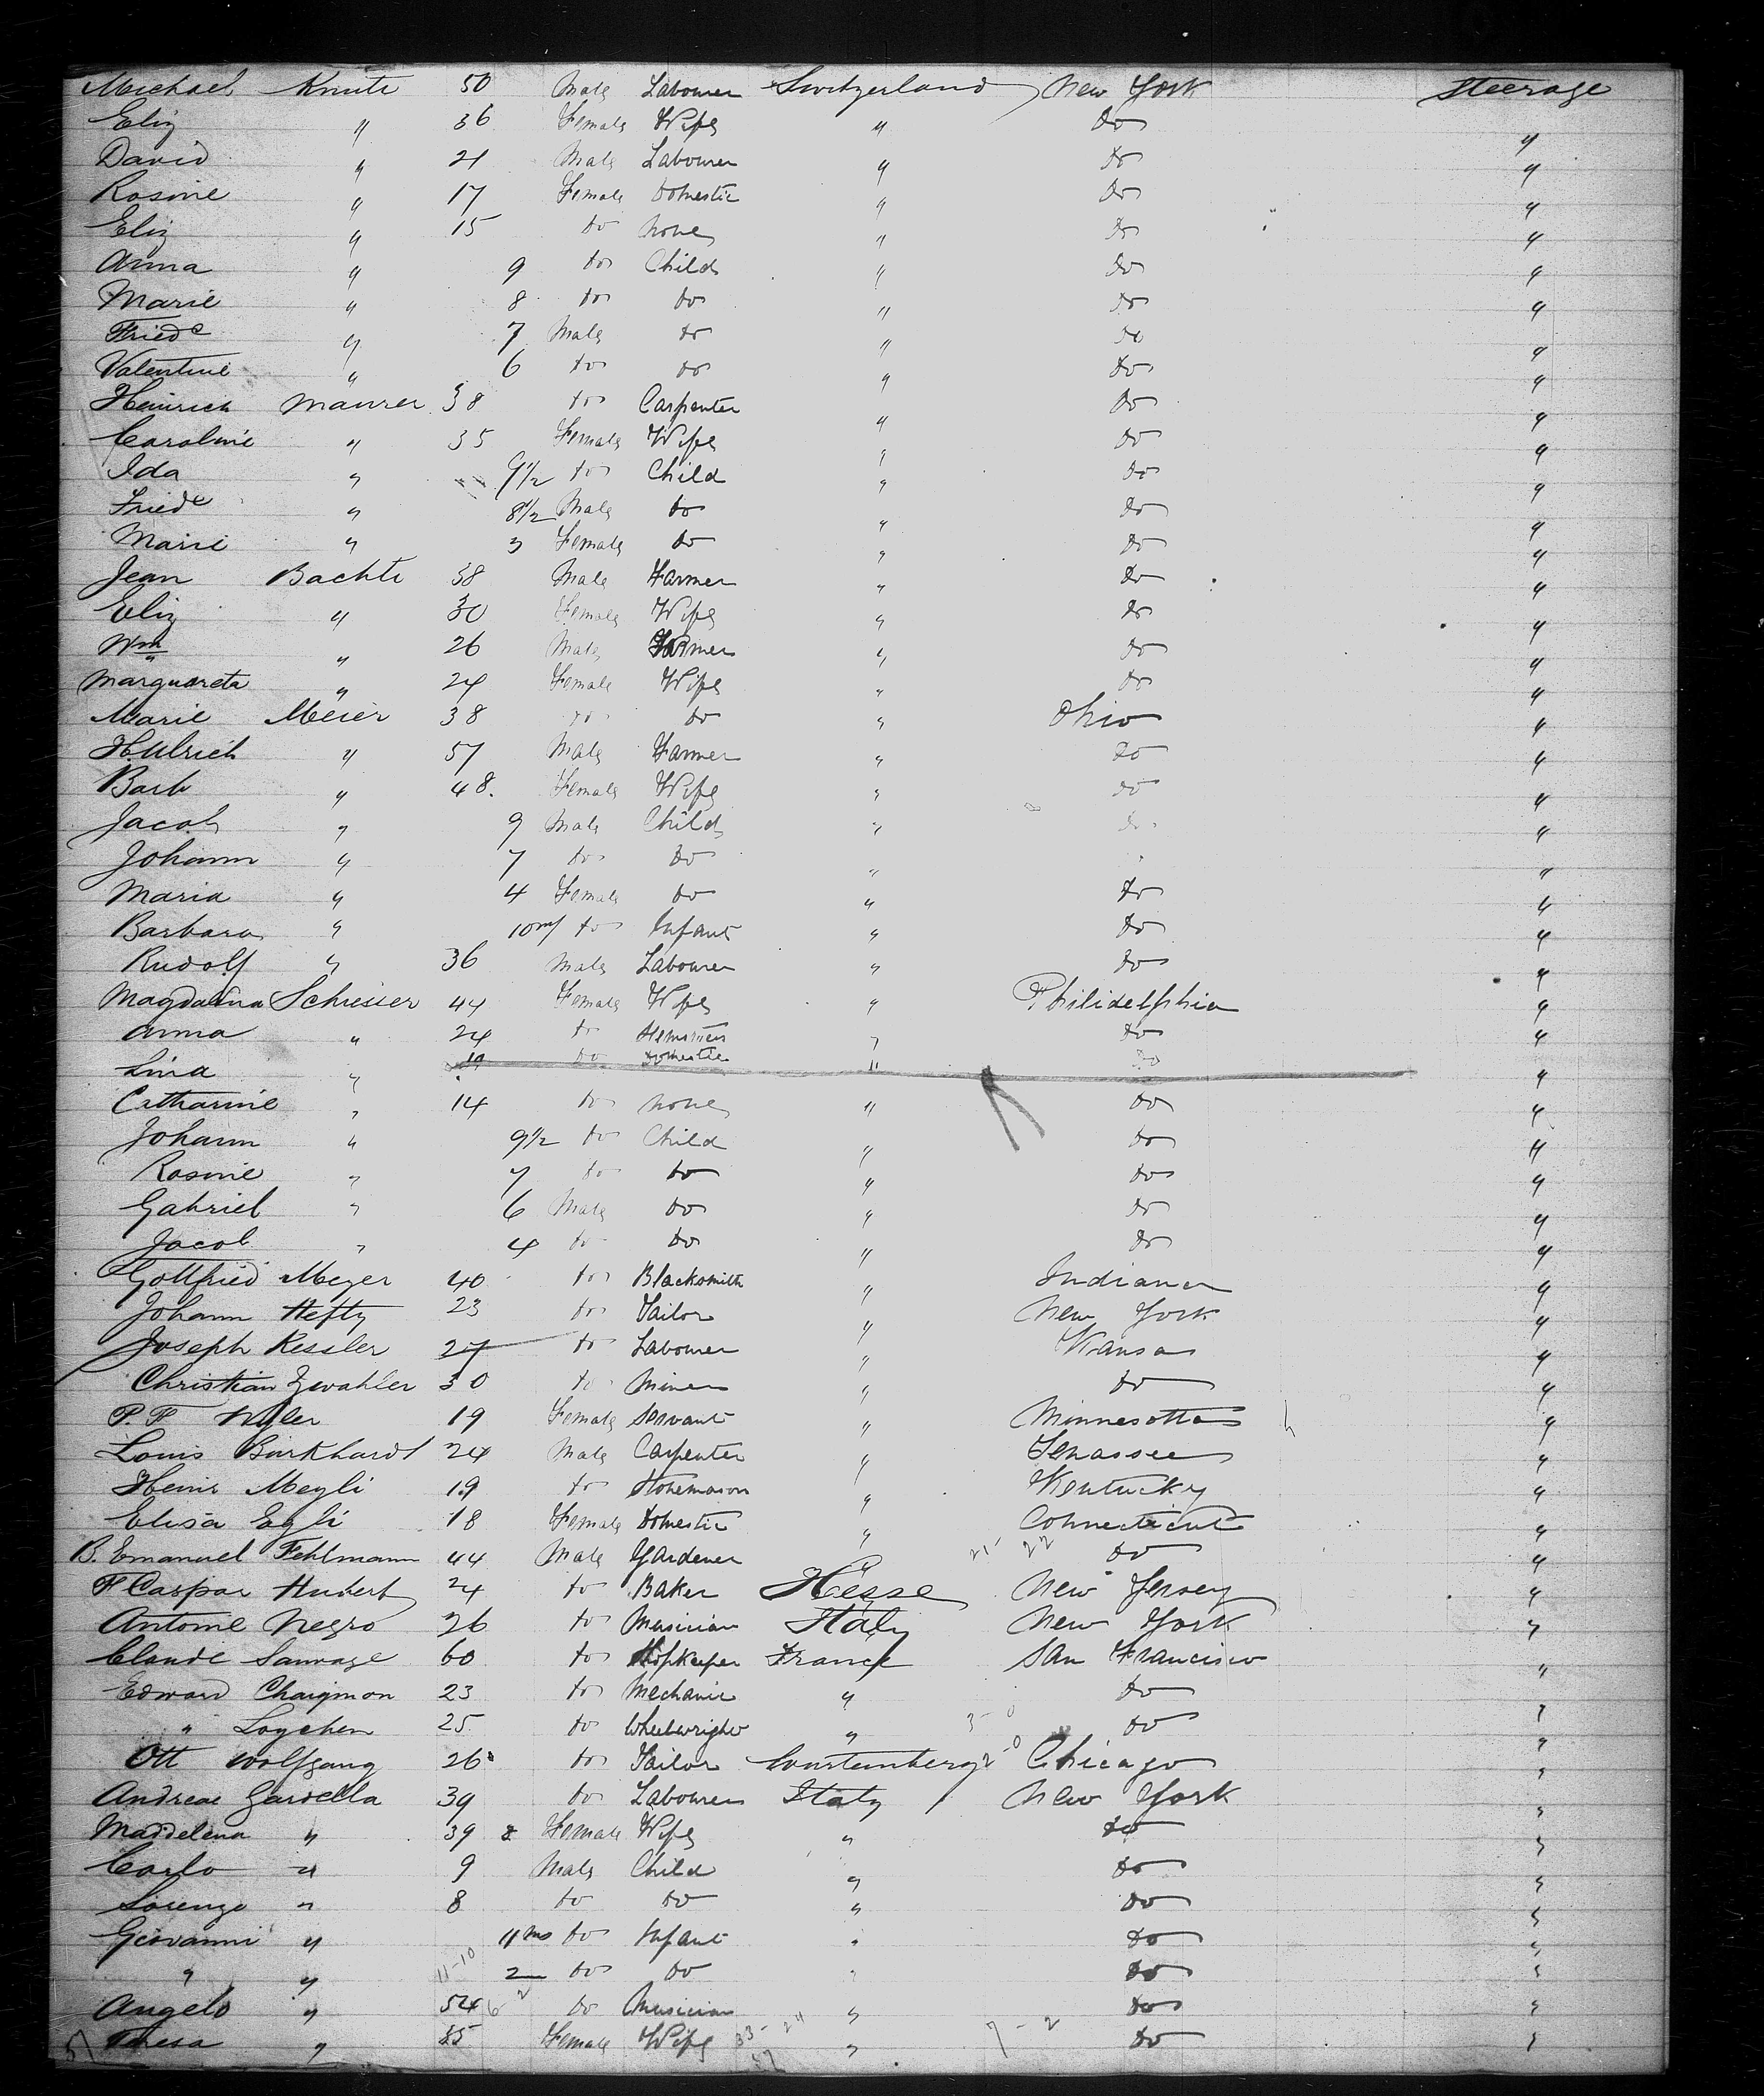 Michael Knuti 50 Male Labourer Switzerland New York Steerage
Eliz " 36 Female Wife " Do "
David " 21 Male Labourer " Do "
Rosine " 17 Female Domestic " Do "
Eliz " 15 do None " Do "
Anna " 9 do Child " Do "
Marie " 8 do do " Do "
Friedc " 7 Male do " Do "
Valentine " 6 do do " Do "
Heinrich Maurer 38 do Carpenter " Do "
Caroline " 35 Female Wife " Do "
Ida " 9 1/2 do Child " Do "
Friedc " 8 1/2 Male do " Do "
Marie " 3 Female do " Do "
Jean Bachti 38 Male Farmer " Do "
Eliz " 30 Female Wife " Do "
Wm " 26 Male Farmer " Do "
Marguareta " 24 Female Wife " Do "
Marie Meier 38 do do " Ohio "
H. Ulrich " 57 Male Farmer " Do "
Barb " 48 Female Wife " do "
Jacob " 9 Male Child " do "
Johann " 7 do do " "
Maria " 4 Female do " Do "
Barbara " 10m do Infant " Do "
Rudolf " 36 Male Labourer " Do "
Magdalina Schiesser 44 Female Wife " Philidelphia "
Anna " 24 do Semstress " do "
Lina " 19 do Domestic " Do "
Catharine " 14 do None " Do "
Johann " 9 1/2 do Child " Do "
Rosine " 7 do do " Do "
Gabriel " 6 Male do " Do "
Jacob " 4 do do " Do "
Gottfried Meyer 40 do Blacksmith " Indiana "
Johann Hefty 23 do Tailor " New York "
Joseph Kessler 27 do Labourer " Kansas "
Christian Zwahler 30 do Miner " do "
P. F Wyler 19 Female Servant " Minnesotta "
Louis Burkhardt 24 Male Carpenter " Tenassee "
Heinr Meyli 19 do Stonemason " Kentucky "
Elisa Egli 18 Female Domestic " Connecticut "
B. Emanuel Fehlmann 44 Male Gardener " 21- 22 do "
F Caspar Hubert 24 do Baker Hesse New Jersey "
Antonie Negro 26 do Musician Italy New York "
Claude Sauvage 60 do Shopkeeper France San Francisco "
Edward Chaignon 23 do Mechanic " do "
" Loychen 25 do Wheelwright " do "
Ott Wolfgang 26 do Tailor Wurtemberg Chicago "
Andreae Gardella 39 do Labourer Italy New York "
Maddelena " 39 Female Wife " do "
Carlo " 9 Male Child " do "
Lorenzo " 8 do do " do "
Giovanni " 11 ms do Infant " do "
" " 11-10 2 do do " do "
Angelo " 54 do Musician " do "
Teresa " 55 Female Wife " 7 - 2 do "